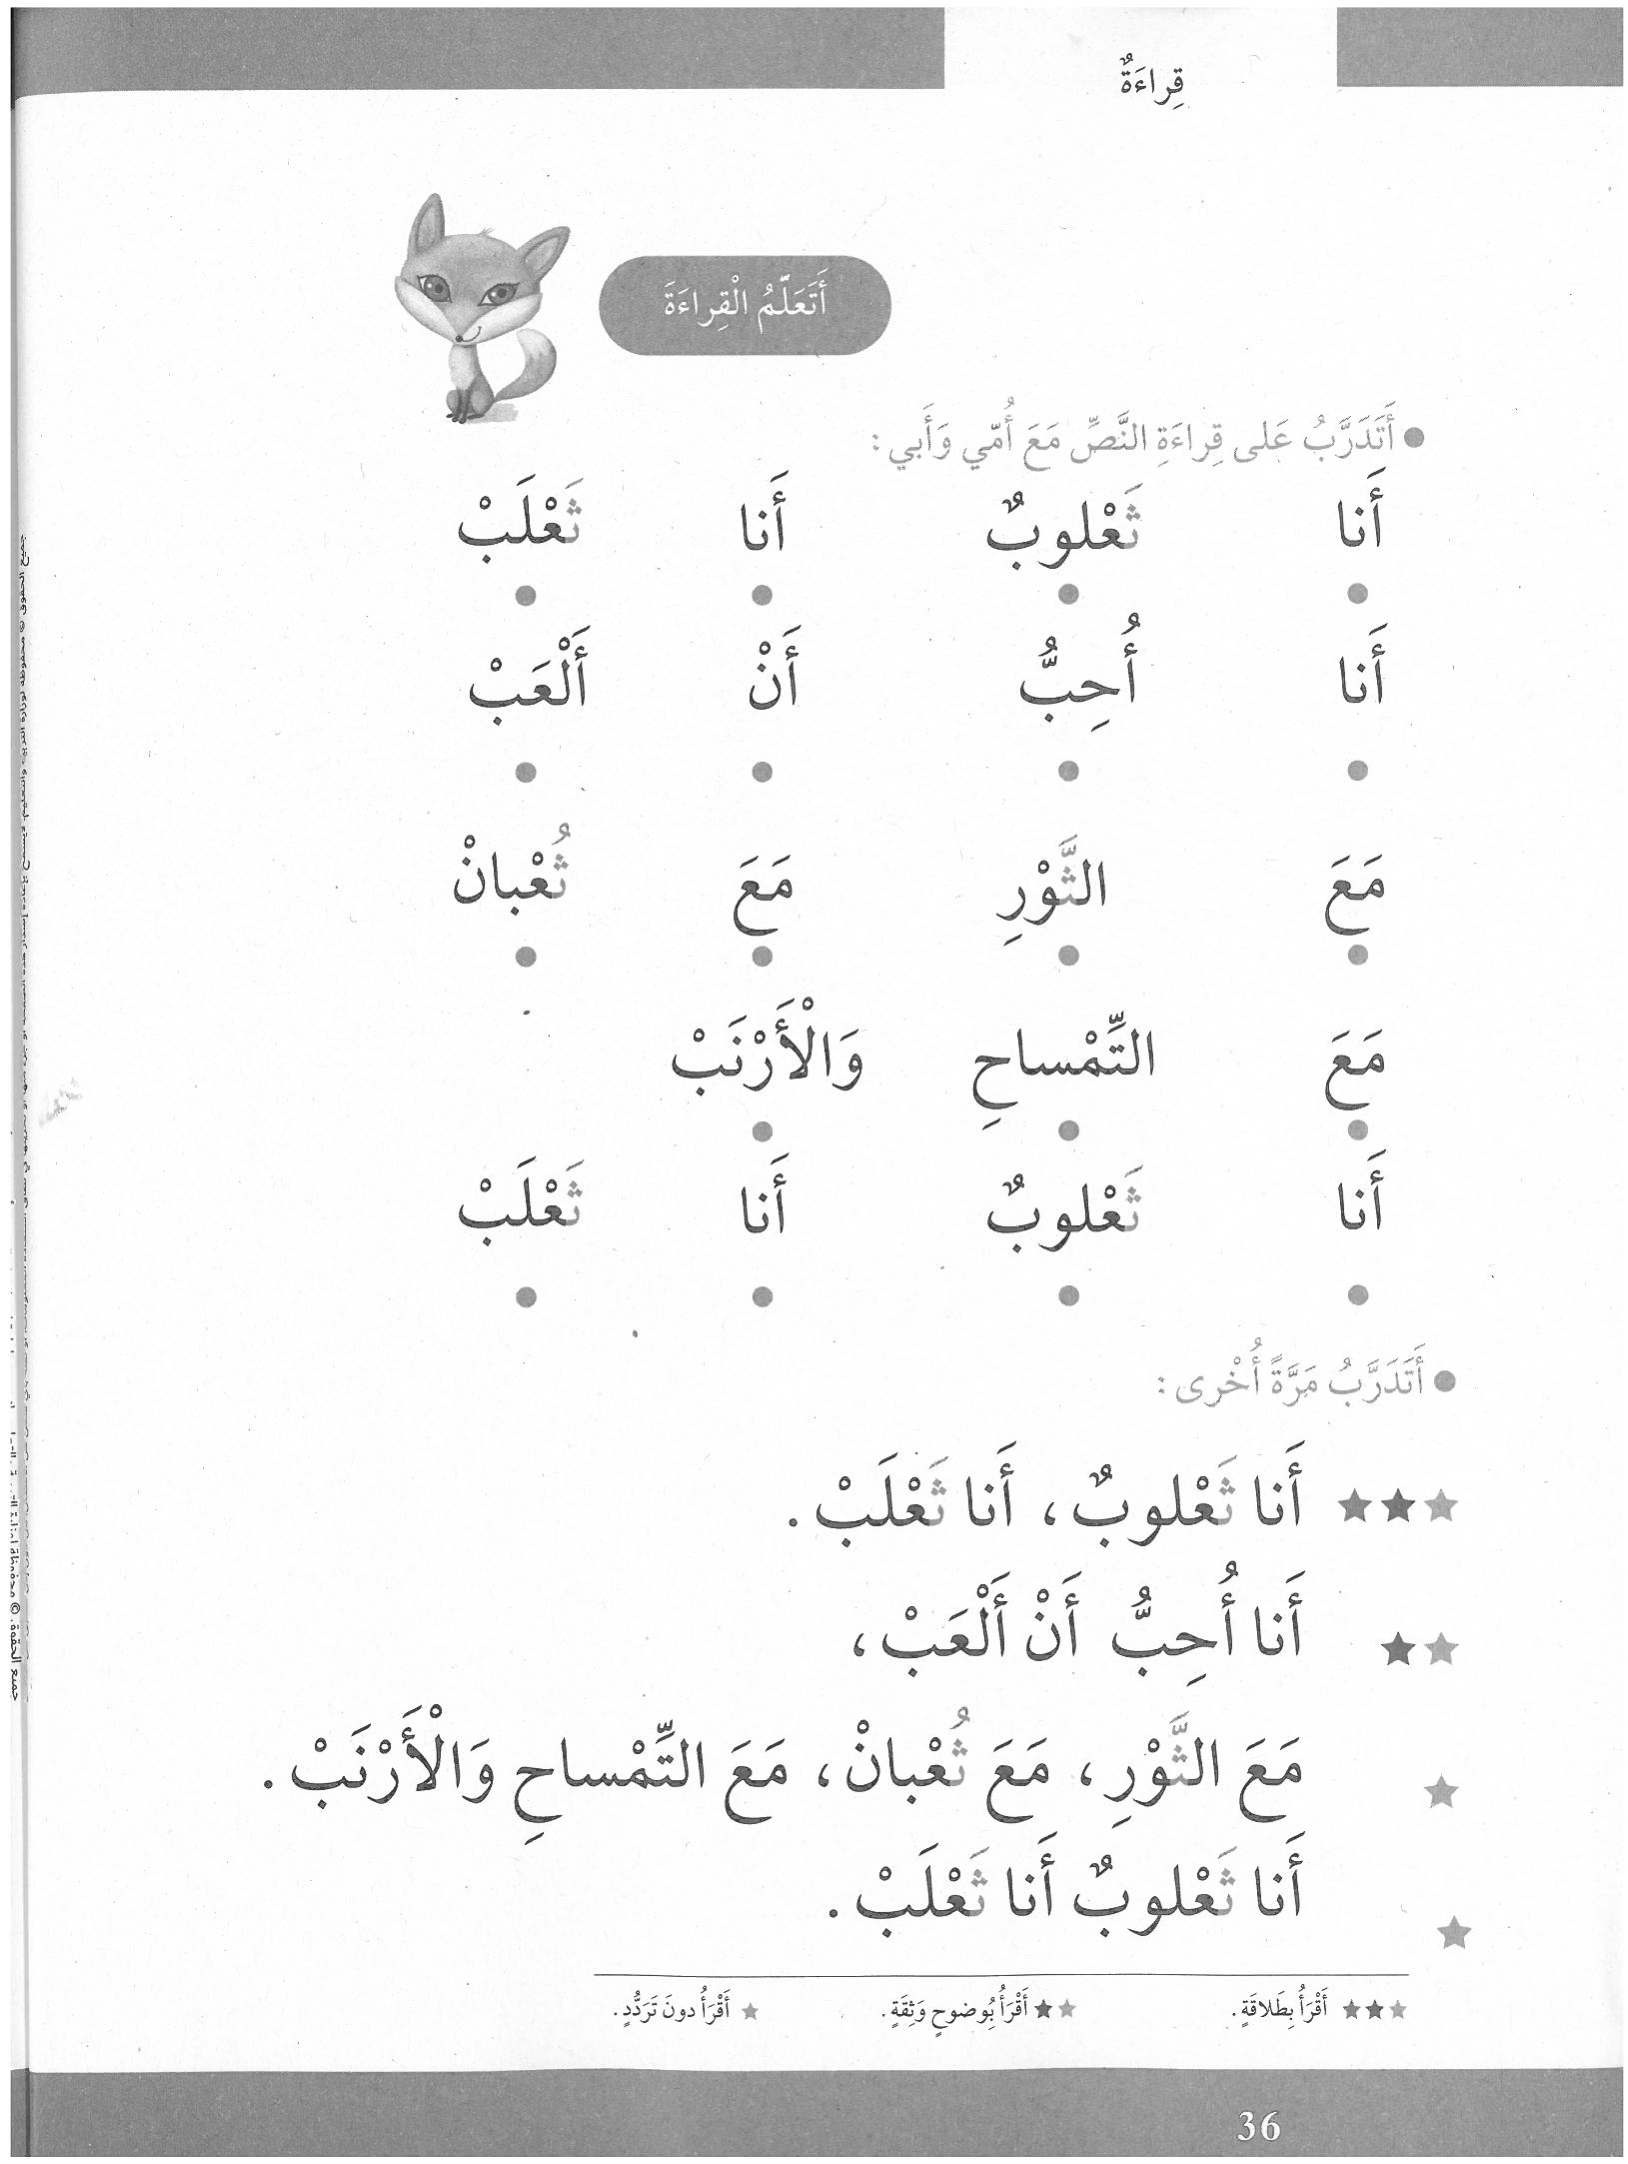 قِراءَةٌ
أَتَعَلَّمُ الْقِراءَةَ
● أَتَدَرَّبُ عَلى قِراءَةِ النَّصِّ مَعَ أُمّي وَأَبي :
أَنا ثَعْلوبٌ أَنا ثَعْلَبْ
أَنا أُحِبُّ أَنْ أَلْعَبْ
مَعَ الثَّوْرِ مَعَ ثُعْبانْ
مَعَ التِّمْساحِ وَالْأَرْنَبْ
أَنا ثَعْلوبٌ أَنا ثَعْلَبْ
● أَتَدَرَّبُ مَرَّةً أُخْرى :
★★★ أَنا ثَعْلوبٌ، أَنا ثَعْلَبْ.
★★ أَنا أُحِبُّ أَنْ أَلْعَبْ،
★ مَعَ الثَّوْرِ، مَعَ ثُعْبانْ، مَعَ التِّمْساحِ وَالْأَرْنَبْ.
★ أَنا ثَعْلوبٌ أَنا ثَعْلَبْ.
★★★ أَقْرَأُ بِطَلاقَةٍ. ★★ أَقْرَأُ بِوُضوحٍ وَثِقَةٍ. ★ أَقْرَأُ دونَ تَرَدُّدٍ.
36